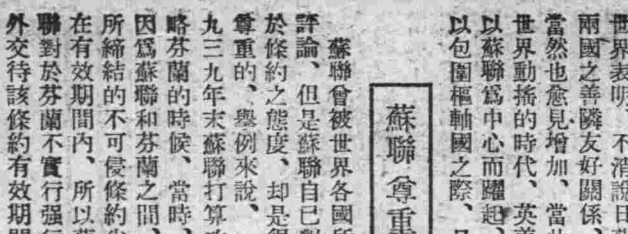 世界表明、不消說日
兩國之善隣友好關係、
當然也愈見增加、當此
世界動搖的時代、英美
以蘇聯爲中心而躍起、
以包圍樞軸國之際、
蘇聯 尊重
蘇聯曾被世界各國所
評論、但是蘇聯自己對
於條約之態度、却是很
尊重的、舉例來說、
九三九年末蘇聯打算
略芬蘭的時候、當時、
因爲蘇聯和芬蘭之間、
所締結的不可侵條約
在有效期間內、所以蘇
聯對於芬蘭不實行强行
外交待該條約有效期間